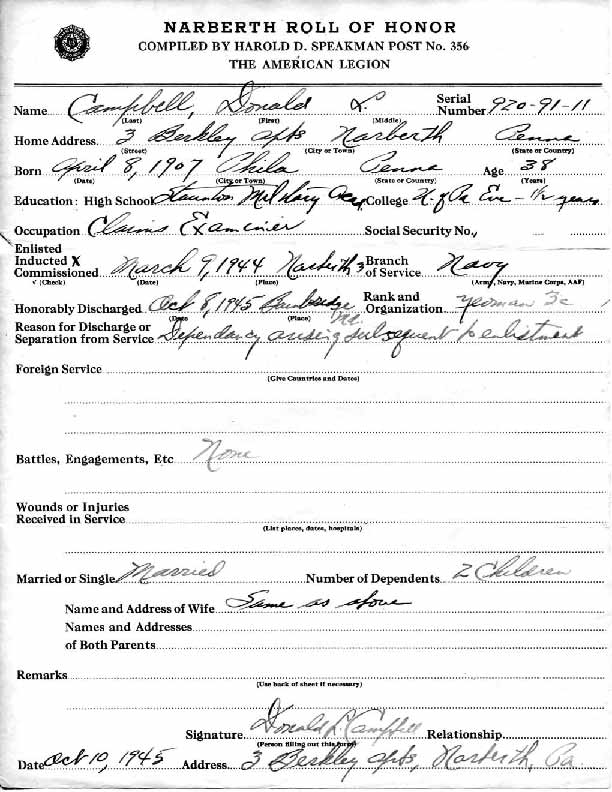 NARBERTH ROLL OF HONOR
COMPILED BY HAROLD D. SPEAKMAN POST No. 356
THE AMERICAN LEGION
Name Campbell, Donald L. Serial Number 920-91-11
(Last) (First) (Middle)
Home Address 3 Berkley Apts Narberth Penna
(Street) (City or Town) (State or Country)
Born April 8, 1907 Phila Penna Age 38
(Date) (City or Town) (State or Country) (Years)
Education: High School Staunton Military Acad College U. of Pa Eve - 1 1/2 years
Occupation Claims Examiner Social Security No.,
Enlisted
Inducted X
Commissioned March 9, 1944 Narberth Branch of Service Navy
√ (Check) (Date) (Place) (Army, Navy, Marine Corps, AAF)
Honorably Discharged Oct 8, 1945 Bainbridge Md. Rank and Organization Yeoman 3c
(Date (Place)
Reason for Discharge or
Separation from Service Dependancy arising subsequent to enlistment
Foreign Service
(Give Countries and Dates)
Battles, Engagements, Etc None
Wounds or Injuries
Received in Service
(List places, dates, hospitals)
Married or Single Married Number of Dependents 2 Children
Name and Address of Wife Same as above
Names and Addresses
of Both Parents
Remarks
(Use back of sheet if necessary)
Signature Donald L Campbell Relationship
(Person filling out this form)
Date Oct 10, 1945 Address 3 Berkley Apts, Narberth, Pa.